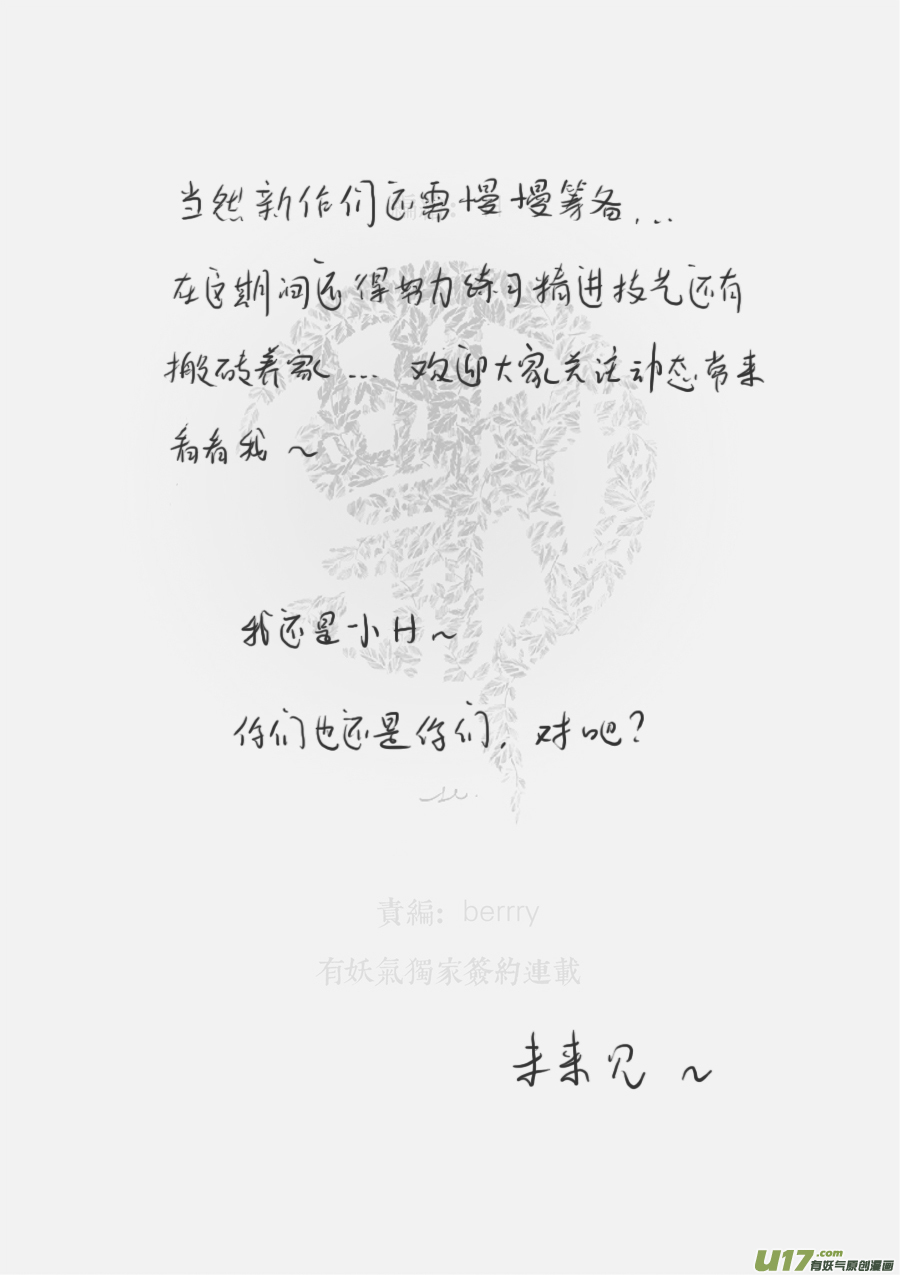 当然新作们还需慢慢筹备...
在这期间还得努力练习精进技艺还有
搬砖养家... 欢迎大家关注动态常来
看看我~
我还是小H~
你们也还是你们,对吧?
責編：berrry
有妖氣獨家簽約連載
未来见~
U17.com
有妖气原创漫画